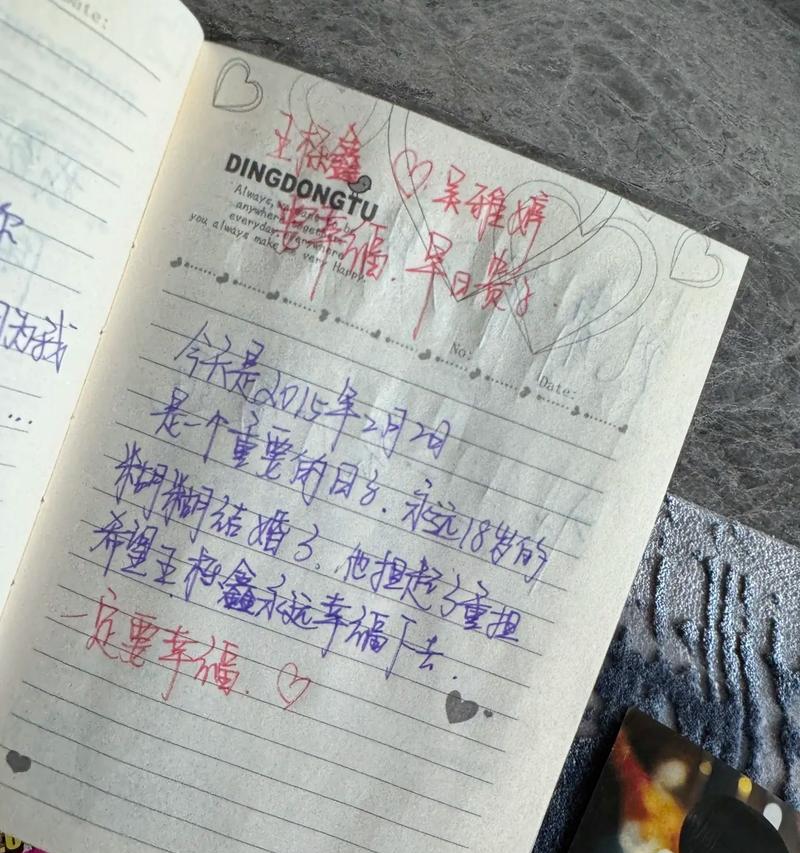 Date:
为我
...
王栎鑫 ♡ 吴雅婷
要幸福. 早日贵子
DINGDONGTU
Always,
everyday, everywhere
you always make very Happy.
No:
Date:
今天是2015年2月2日
是一个重要的日子. 永远18岁的
糊糊结婚了. 他担起了重担
希望王栎鑫永远幸福下去.
一定要幸福. ♡